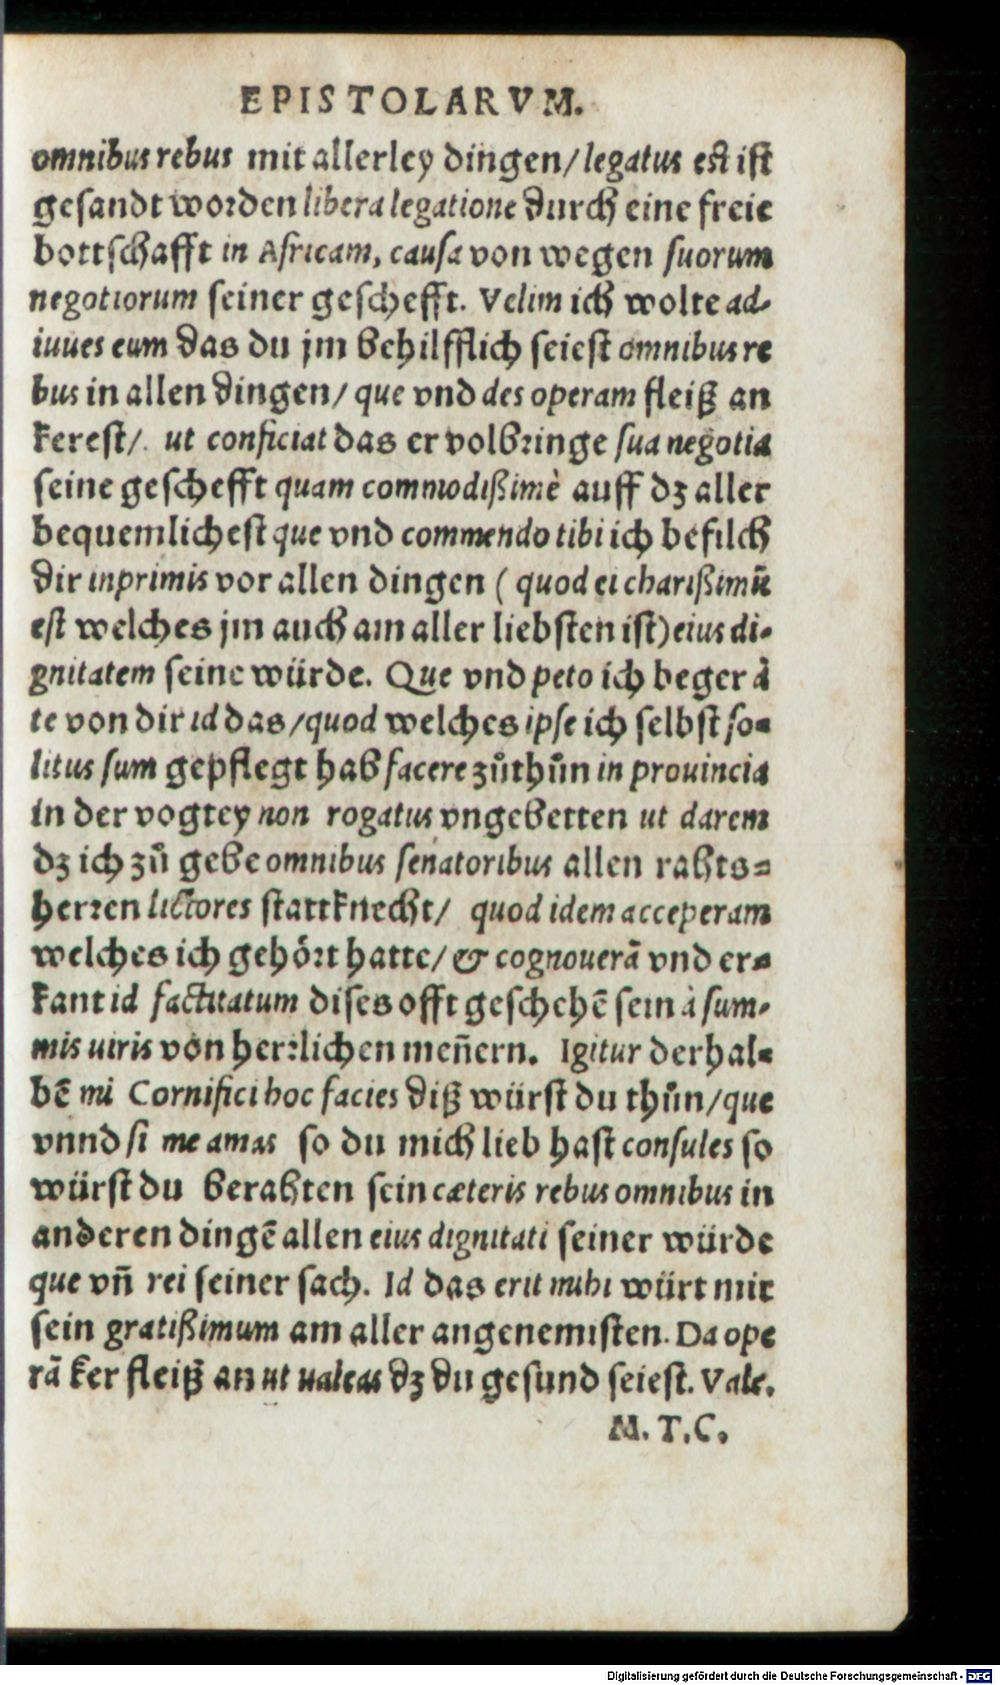 EPISTOLARVM.
omnibus rebus mit allerley dingen/legatus est ist
gesandt worden libera legatione durch eine freie
bottschafft in Africam, causa von wegen suorum
negotiorum seiner geschefft. Velim ich wolte ad-
iuues eum das du jm behilfflich seiest omnibus re
bus in allen dingen/ que vnd des operam fleiß an
kerest/. ut conficiat das er volbringe sua negotia
seine geschefft quam commodißimè auff dz aller
bequemlichest que vnd commendo tibi ich befilch
dir inprimis vor allen dingen ( quod ei charißimũ
est welches jm auch am aller liebsten ist) eius di-
gnitatem seine würde. Que vnd peto ich beger à
te von dir id das/quod welches ipse ich selbst so-
litus sum gepflegt hab facere zůthůn in prouincia
in der vogtey non rogatus vngebetten ut darem
dz ich zů gebe omnibus senatoribus allen rahts-
herren lictores stattknecht/ quod idem acceperam
welches ich gehört hatte/ & cognouerã vnd er-
kant id factitatum dises offt geschehẽ sein à sum-
mis uiris von herrlichen meñern. Igitur derhal-
bẽ mi Cornifici hoc facies diß würst du thůn/que
vnnd si me amas so du mich lieb hast consules so
würst du berahten sein cæteris rebus omnibus in
anderen dingẽ allen eius dignitati seiner würde
que vñ rei seiner sach. Id das erit mihi würt mir
sein gratißimum am aller angenemisten. Da ope
rã ker fleiß an ut ualeas dz du gesund seiest. Vale.
M. T. C.
Digitalisierung gefördert durch die Deutsche Forschungsgemeinschaft - DFG